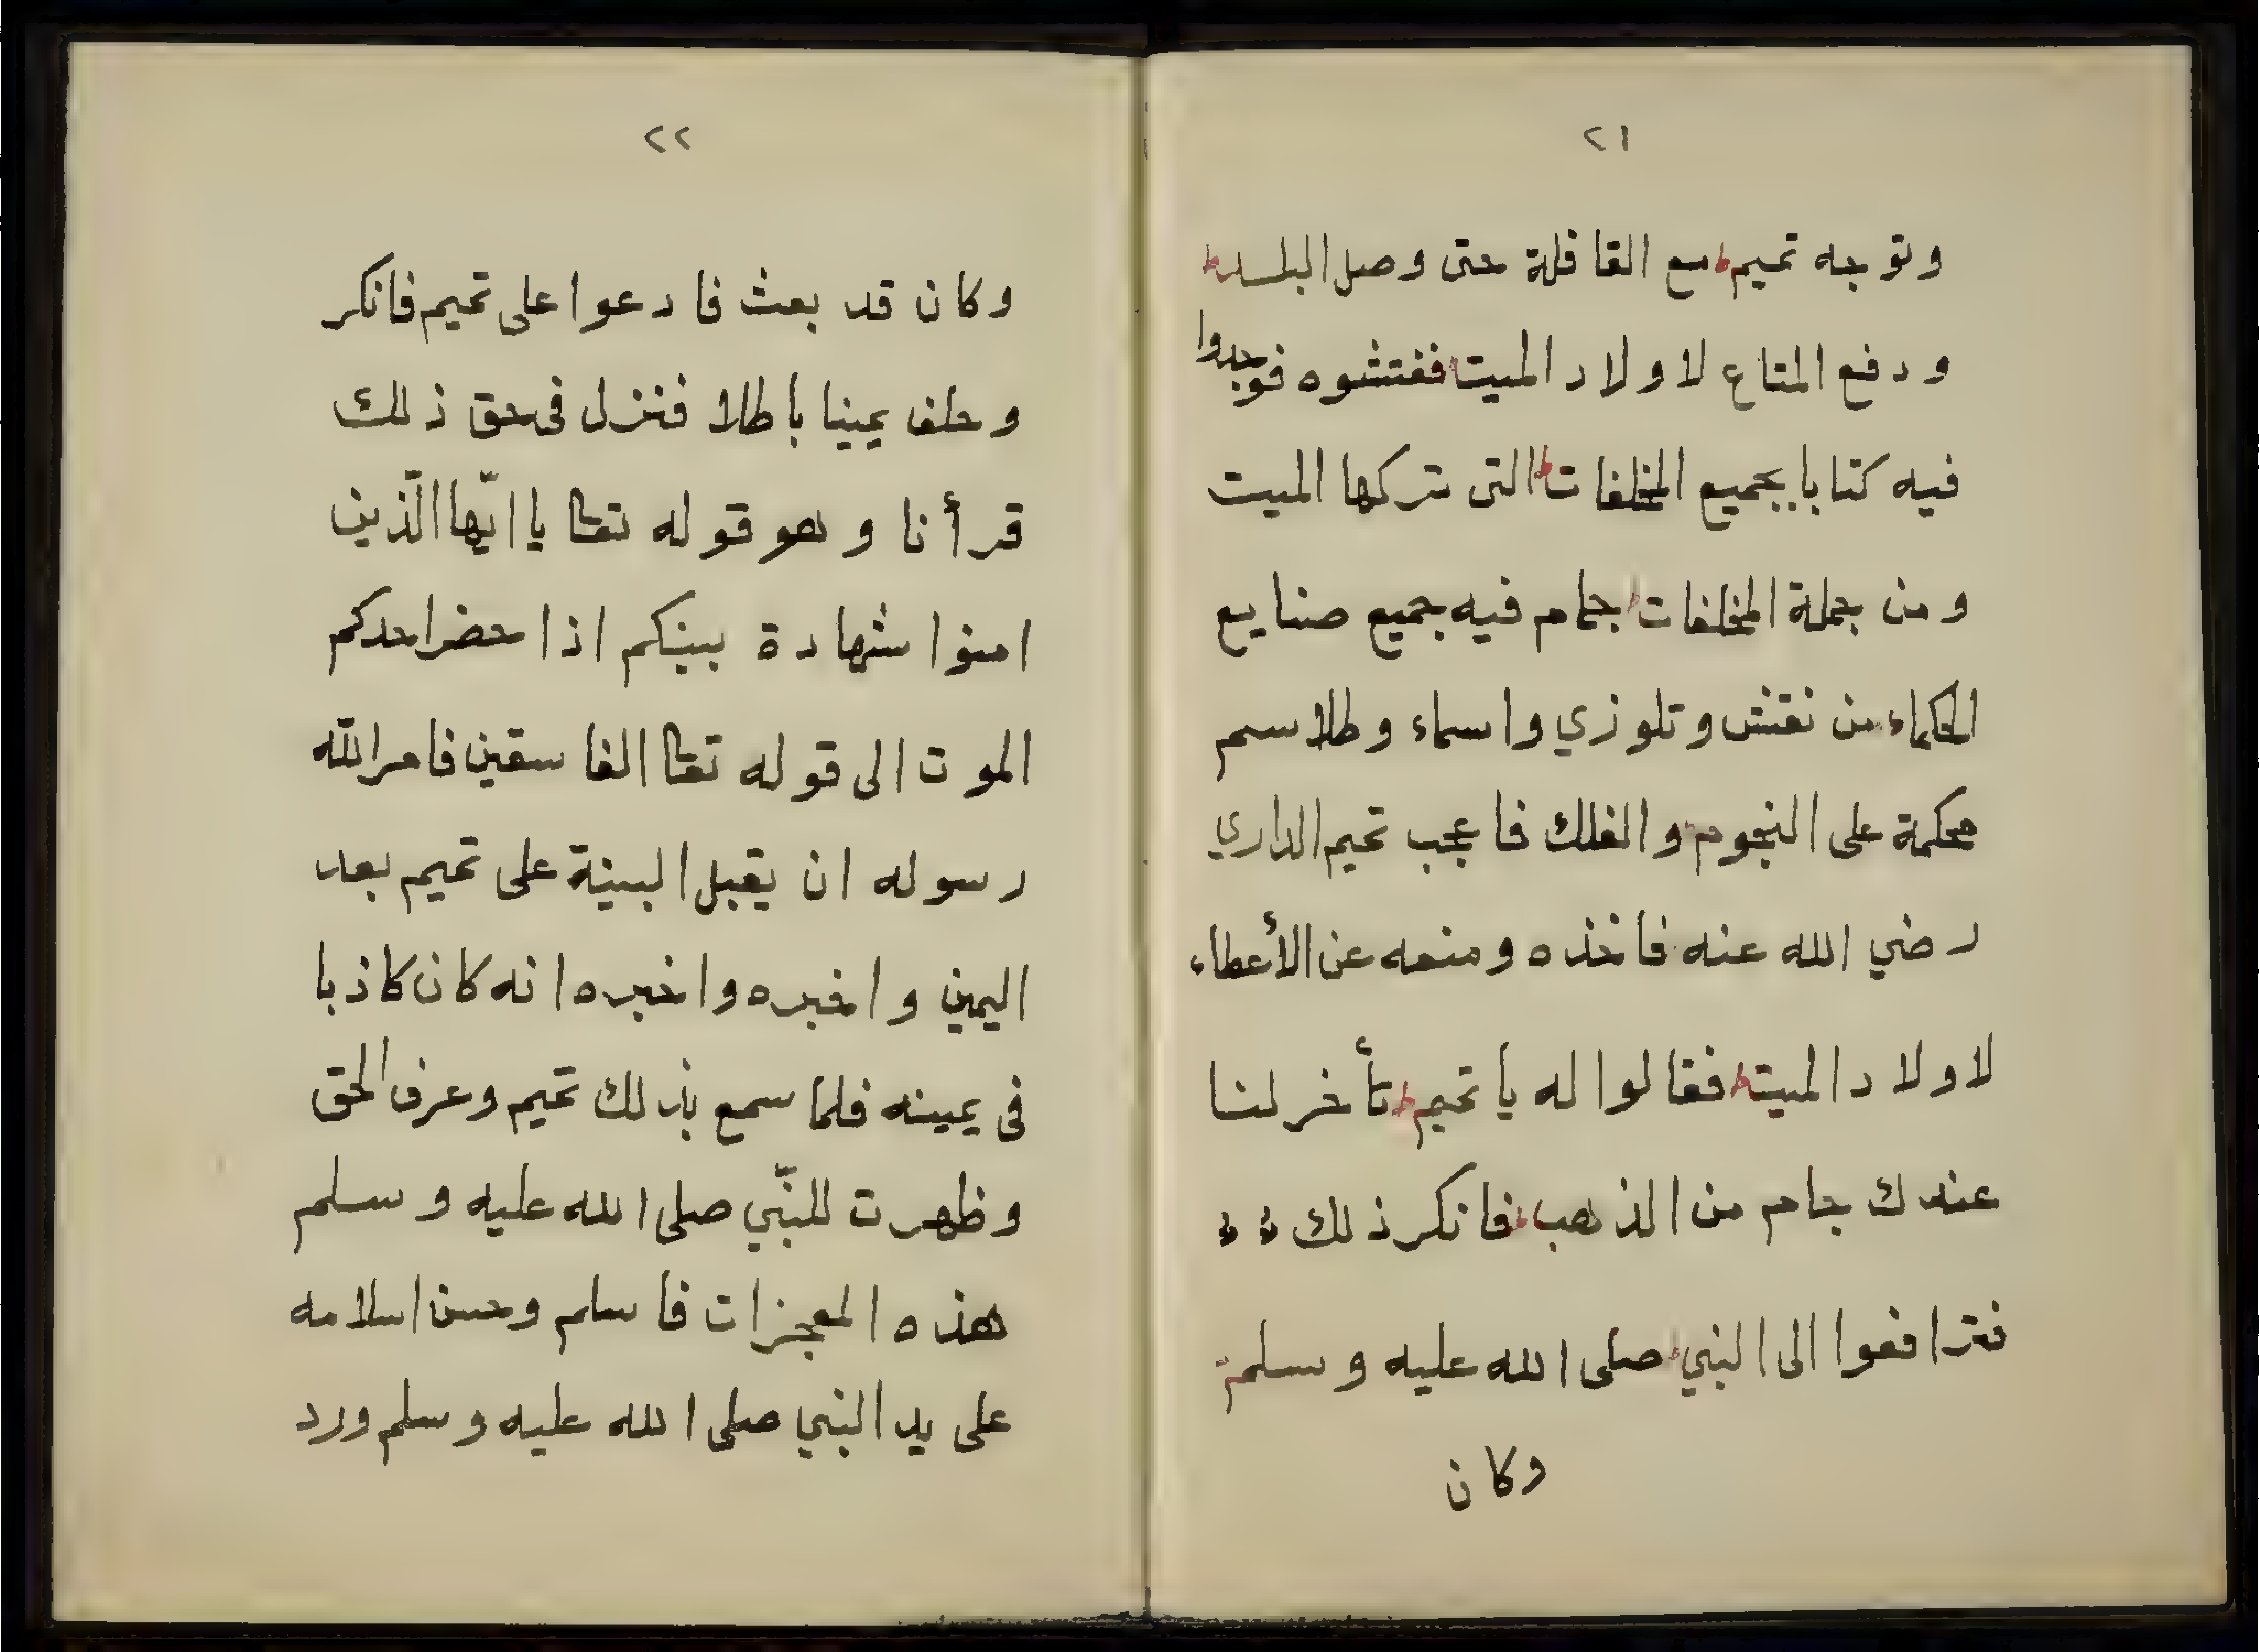 ٢١
وتوجه تميم مع القافلة حتى وصل البلد
ودفع المتاع لاولاد الميت ففتشوه فوجدوا
فيه كتابا بجميع المخلفات التى تركها الميت
ومن جملة المخلفات جام فيه جميع صنايع
الحكماء من نقش وتلوزي واسماء وطلاسم
محكمة على النجوم والفلك فاعجب تميم الداري
رضي الله عنه فاخذه ومنعه عن الأعطاء
لاولاد الميت فقالوا له يا تميم تأخر لنا
عندك جام من الذهب فانكر ذلك
فترافعوا الى النبي صلى الله عليه وسلم
وكان
٢٢
وكان قد بعث فادعوا على تميم فانكر
وحلف يمينا باطلا فنزل فى حق ذلك
قرأنا وهو قوله تعا يا ايّها الّذين
امنوا شهادة بينكم اذا حضر احدكم
الموت الى قوله تعا الفاسقين فامر اللّه
رسوله ان يقبل البينة على تميم بعد
اليمين واخبره واخبره انه كان كاذبا
فى يمينه فلما سمع بذلك تميم وعرف الحق
وظهرت للنّبي صلى الله عليه وسلم
هذه المعجزات فاسلم وحسن اسلامه
على يد النبي صلى الله عليه وسلم ورد